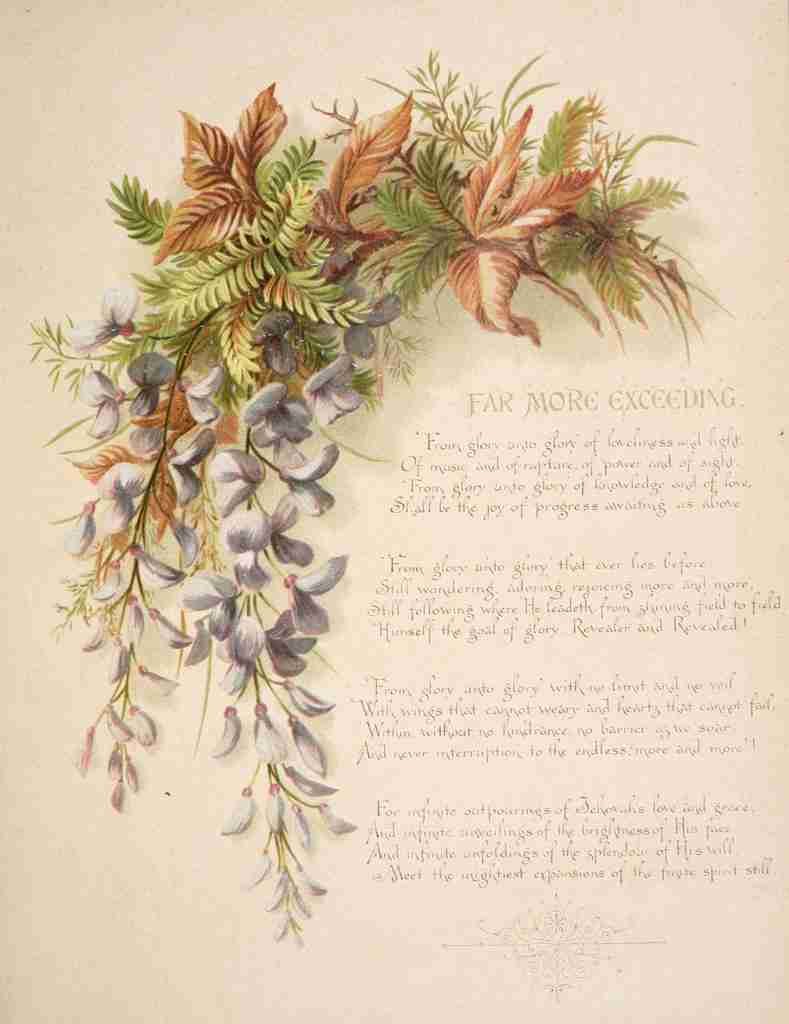 FAR MORE EXCEEDING.
From glory unto glory of loveliness and light,
Of music and of rapture, of power and of sight,
From glory unto glory of knowledge and of love,
Shall be the joy of progress awaiting us above.
From glory unto glory that ever lies before,
Still wondering, adoring, rejoicing more and more,
Still following where He leadeth, from shining field to field,
Himself the goal of glory, Revealer and Revealed!
From glory unto glory with no limit and no veil,
With wings that cannot weary and hearts that cannot fail,
Within, without, no hindrance, no barrier as we soar,
And never interruption to the endless "more and more"!
For infinite outpourings of Jehovah's love and grace,
And infinite unveilings of the brightness of His face,
And infinite unfoldings of the splendour of His will,
Meet the mightiest expansions of the finite spirit still.